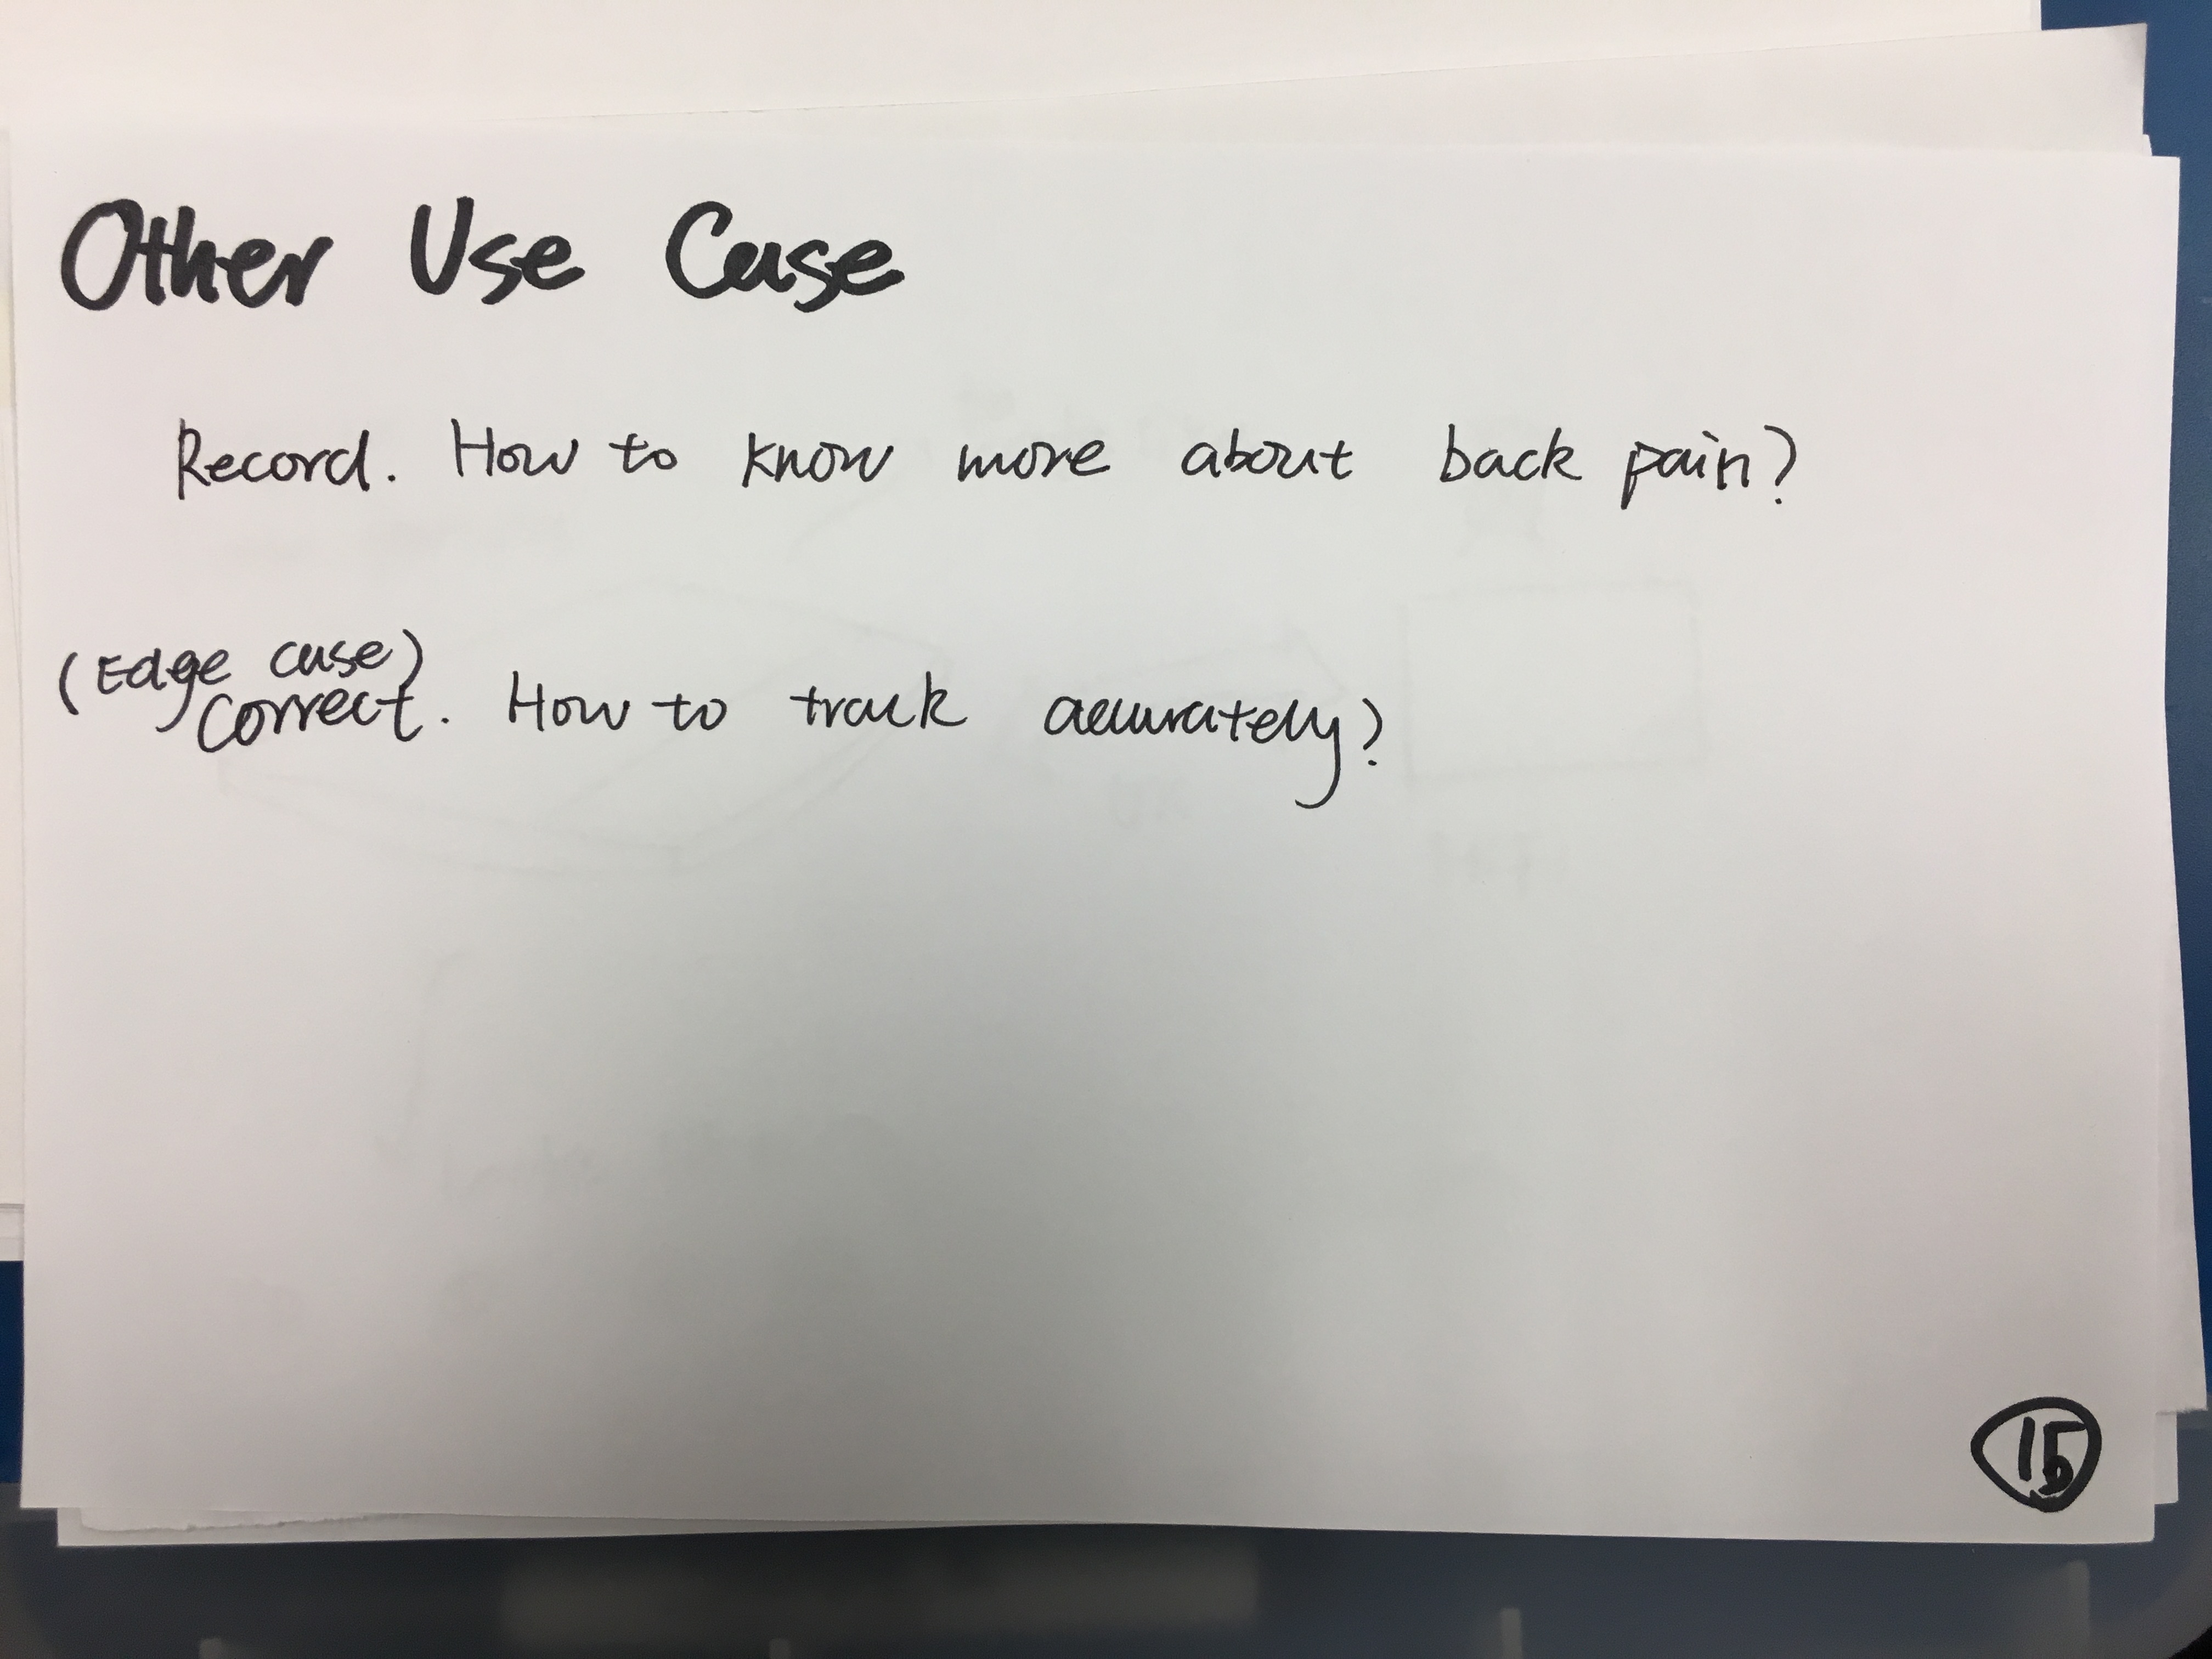 Other Use Case
Record. How to know more about back pain?
(Edge case)
Correct. How to track accurately?
15